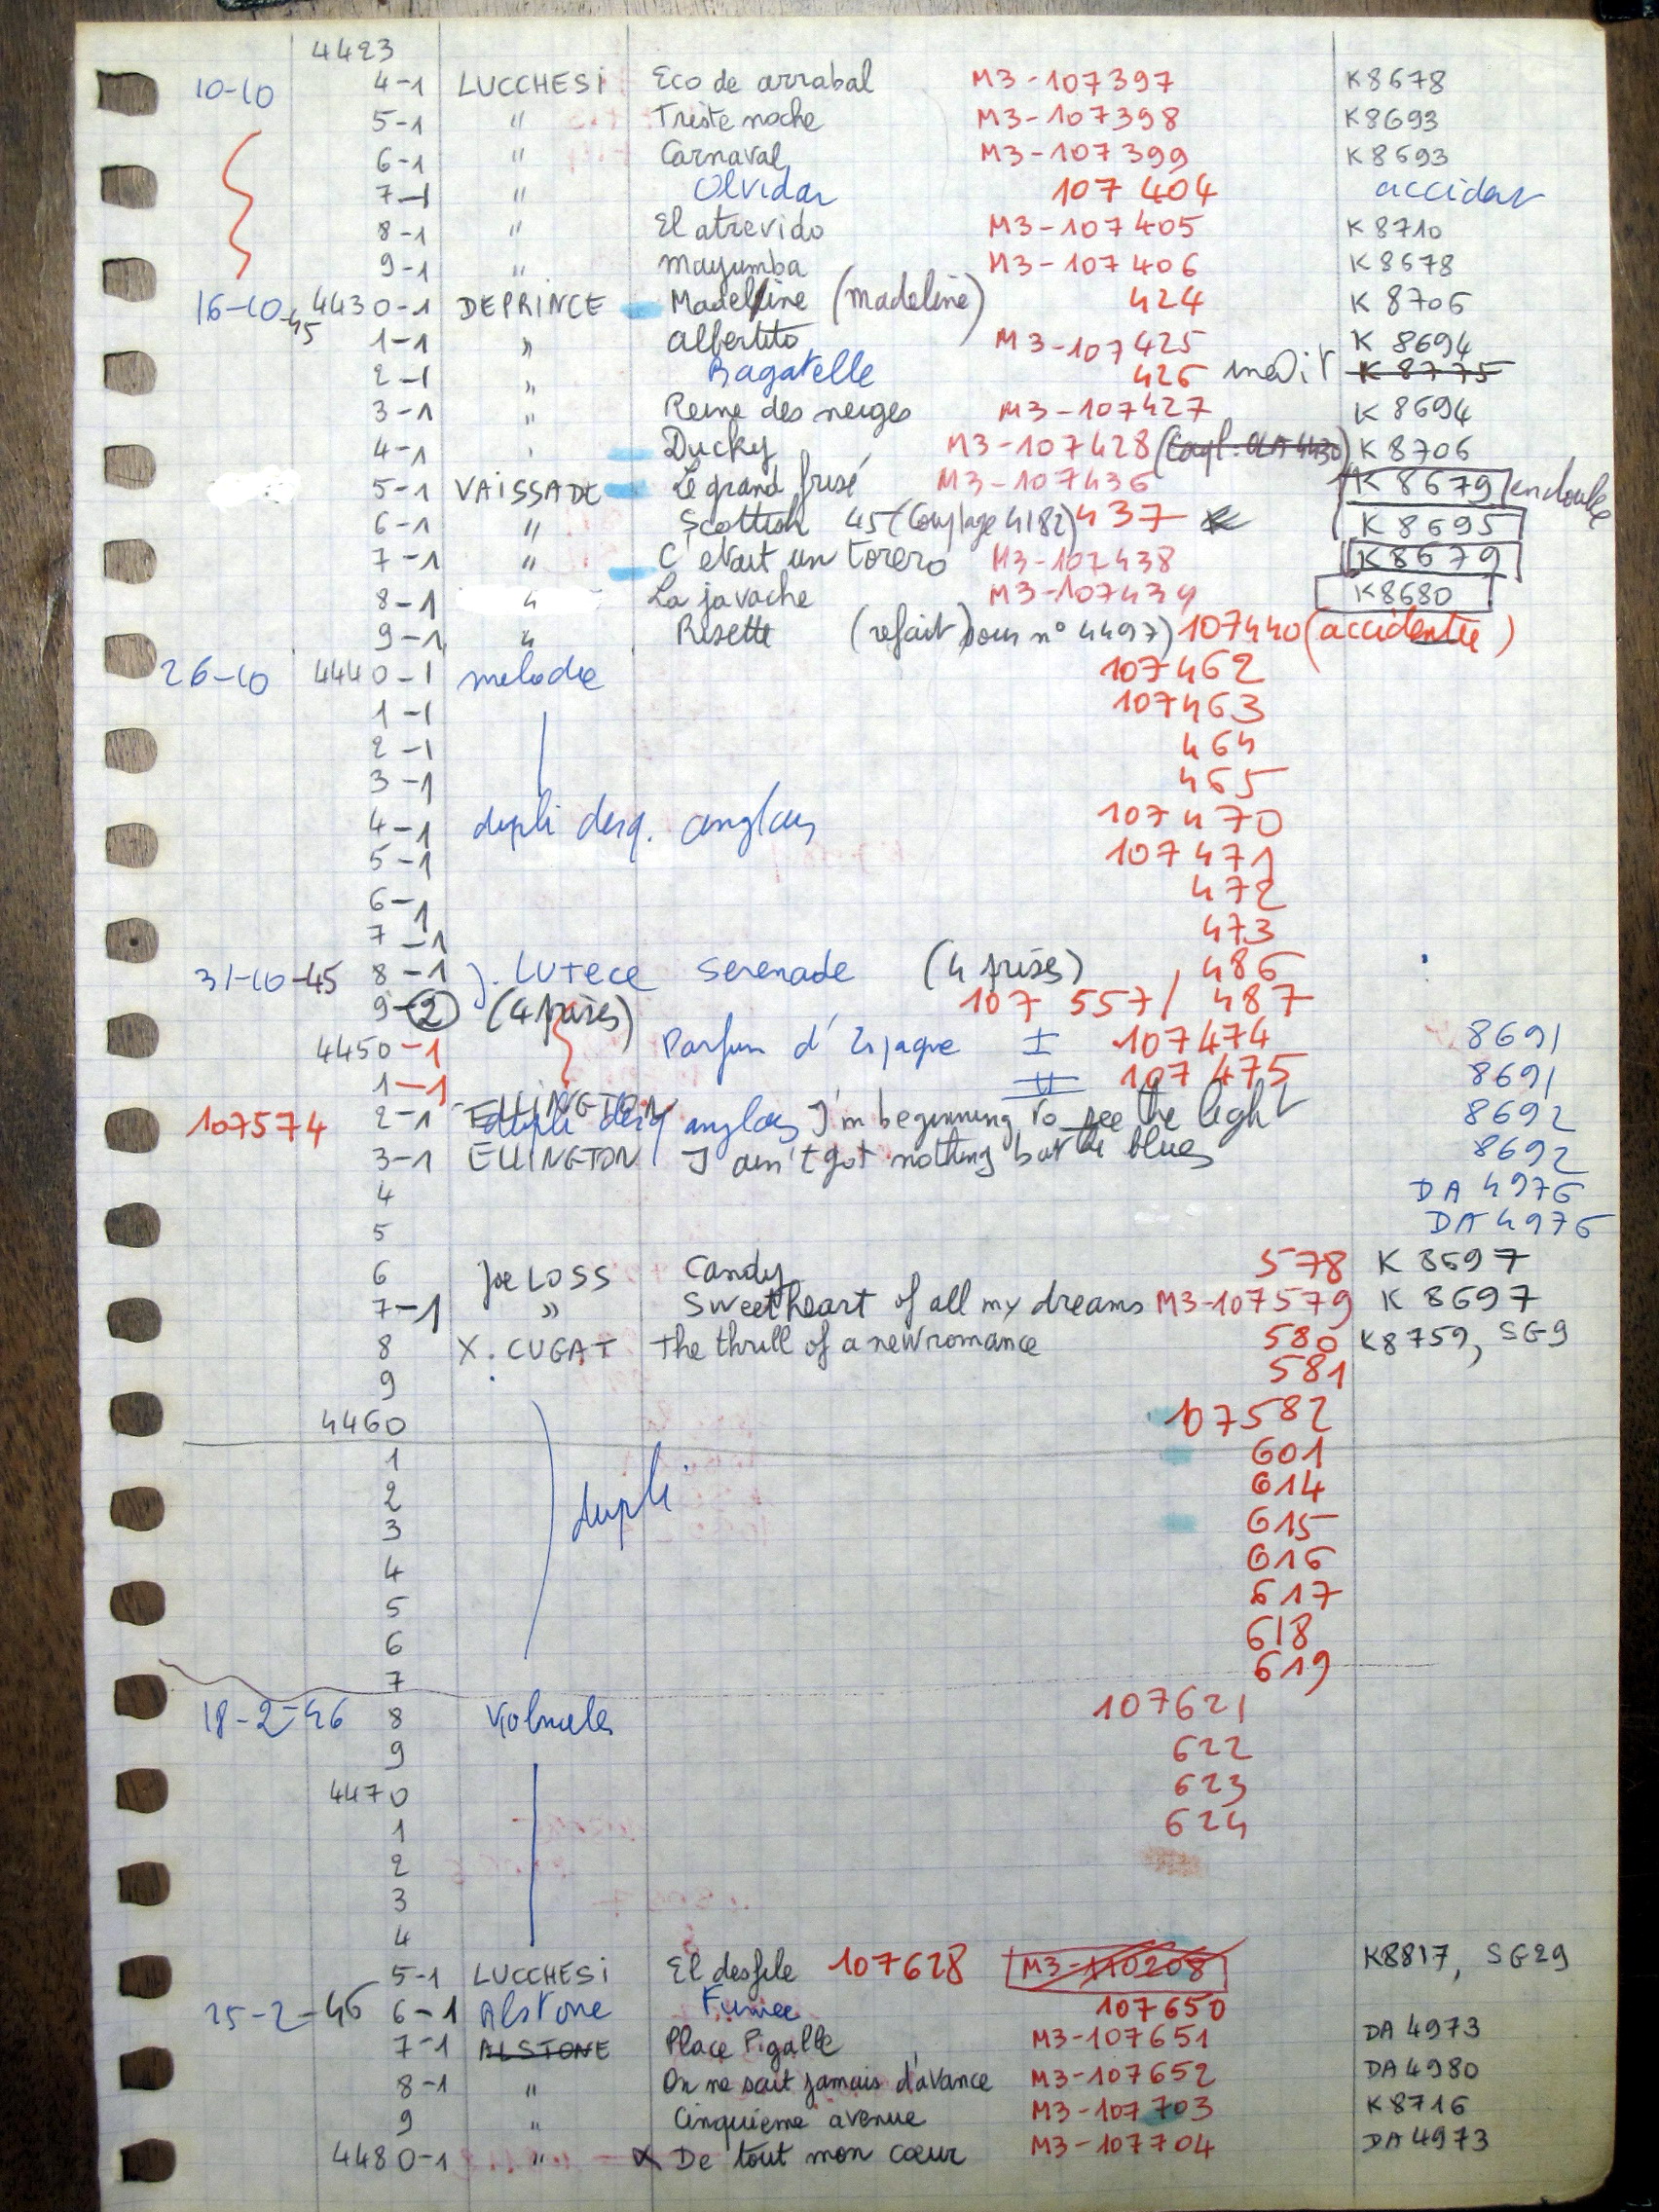 4423
10-10 4-1 LUCCHESI Eco de arrabal M3-107397 K8678
5-1 " Triste noche M3-107398 K8693
6-1 " Carnaval M3-107399 K8693
7-1 " Olvidar 107 404 accident
8-1 " El atrevido M3-107405 K8710
9-1 " Mayumba M3-107406 K8678
16-10-45 4430-1 DEPRINCE Madeline (madeline) 424 K 8706
1-1 " Albertito M3-107425 K 8694
2-1 " Bagatelle 426 inedit K 8775
3-1 " Reine des neiges M3-107427 K 8694
4-1 " Ducky M3-107428 K 8706
5-1 VAISSADE Le grand frisé M3-107436 K 8679 en double
6-1 " Scottish 45 (Couplage 4182) 437 K 8695
7-1 " C'etait un torero M3-107438 K8679
8-1 " La javache M3-107439 K8680
9-1 " Risette (refait sous n° 4497) 107440 (accidentée)
26-10 4440-1 melodie 107462
1-1 107463
2-1 464
3-1 465
4-1 dupli desq. anglais 107470
5-1 107471
6-1 472
7-1 473
31-10-45 8-1 J. LUTECE Serenade (4 prises) 486
9-2 (4 prises) 107 557/ 487
4450-1 Parfum d'Espagne I 107474 8691
1-1 II 107475 8691
107574 2-1 ELLINGTON dupli desq anglais I'm beginning to see the light 8692
3-1 ELLINGTON I ain't got nothing but the blues 8692
4 DA 4976
5 DA 4976
6 Joe LOSS Candy 578 K 8697
7-1 " Sweetheart of all my dreams M3-107579 K 8697
8 X. CUGAT The thrill of a new romance 580 K8759, SG9
9 581
4460 107582
1 601
2 dupli 614
3 615
4 616
5 617
6 618
7 619
18-2-46 8 107621
9 622
4470 623
1 624
2
3
4
5-1 LUCCHESI El desfile 107628 M3-110208 K8817, SG29
25-2-46 6-1 Alstone Fumee 107650
7-1 ALSTONE Place Pigalle M3-107651 DA 4973
8-1 " On ne sait jamais d'avance M3-107652 DA4980
9 " Cinquieme avenue M3-107703 K8716
4480-1 " x De tout mon cœur M3-107704 DA 4973